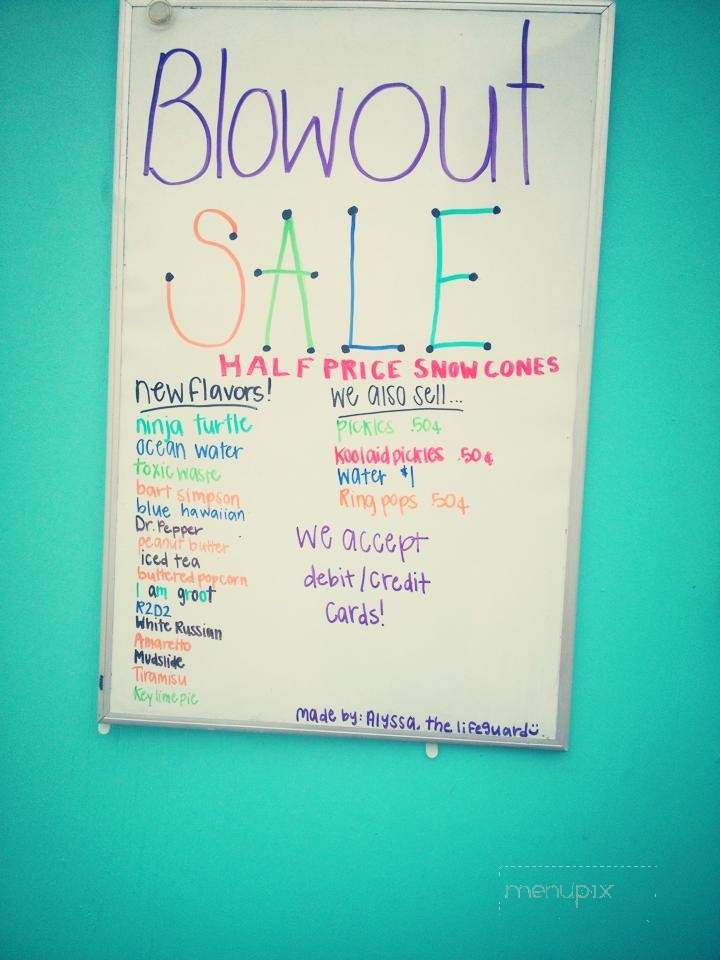 Blowout
SALE
HALF PRICE SNOW CONES
new flavors!
ninja turtle
ocean water
toxic waste
bart simpson
blue hawaiian
Dr. Pepper
peanut butter
iced tea
buttered popcorn
I am groot
R2D2
White Russian
Amaretto
Mudslide
Tiramisu
Key lime pie
we also sell...
pickles .50¢
Koolaid pickles .50¢
Water $1
Ring pops .50¢
We accept
debit/credit
Cards!
made by: Alyssa, the lifeguard
menupix